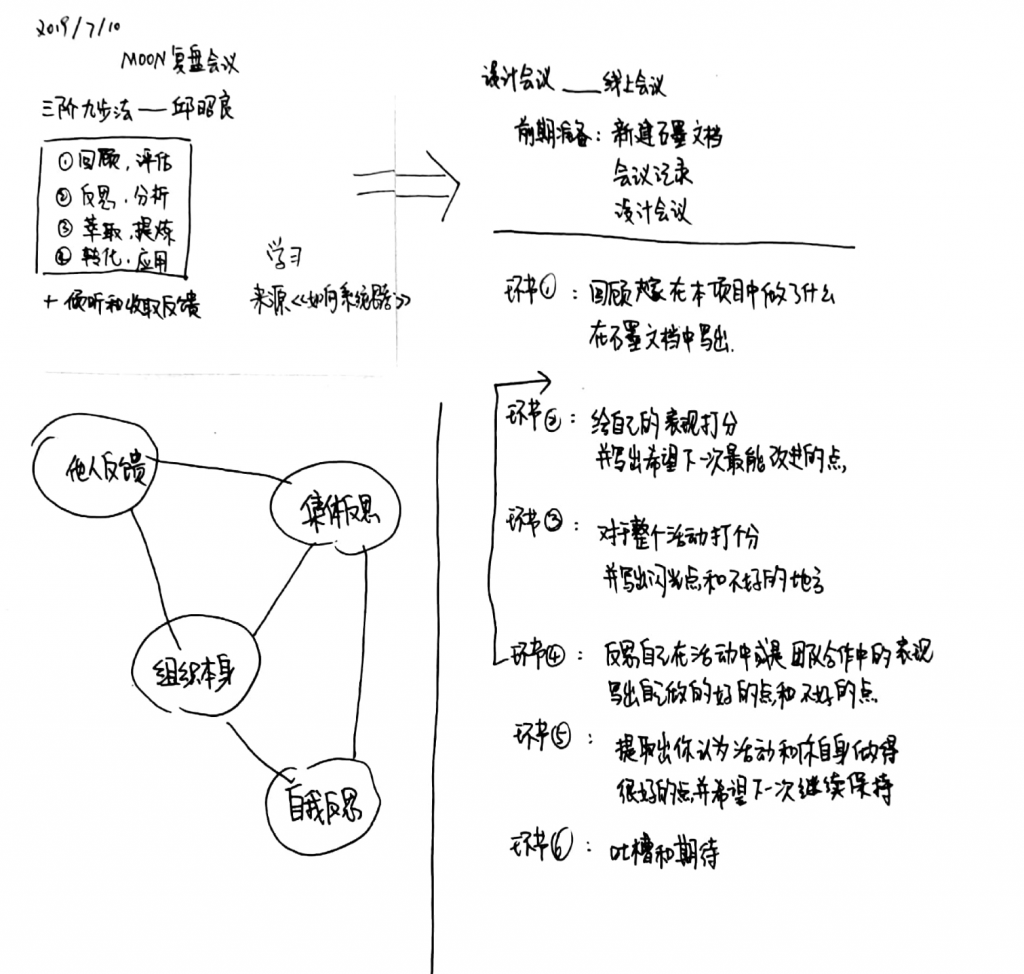 2019/7/10
MOON复盘会议
三阶九步法——邱昭良
①回顾、评估
②反思、分析
③萃取、提炼
④转化、应用
+ 倾听和收取反馈
学习
来源《如何系统思考》
他人反馈
集体反思
组织本身
自我反思
设计会议 ——线上会议
前期准备：新建石墨文档
会议记录
设计会议
环节①：回顾大家在本项目中做了什么
在石墨文档中写出.
环节②：给自己的表现打分
并写出希望下一次最能改进的点,
环节③：对于整个活动打个分
并写出闪光点和不好的地方
环节④：反思自己在活动中或是团队合作中的表现
写出自己做的好的点和不好的点
环节⑤：提取出你认为活动和你自身做得
很好的点,并希望下一次继续保持
环节⑥：吐槽和期待